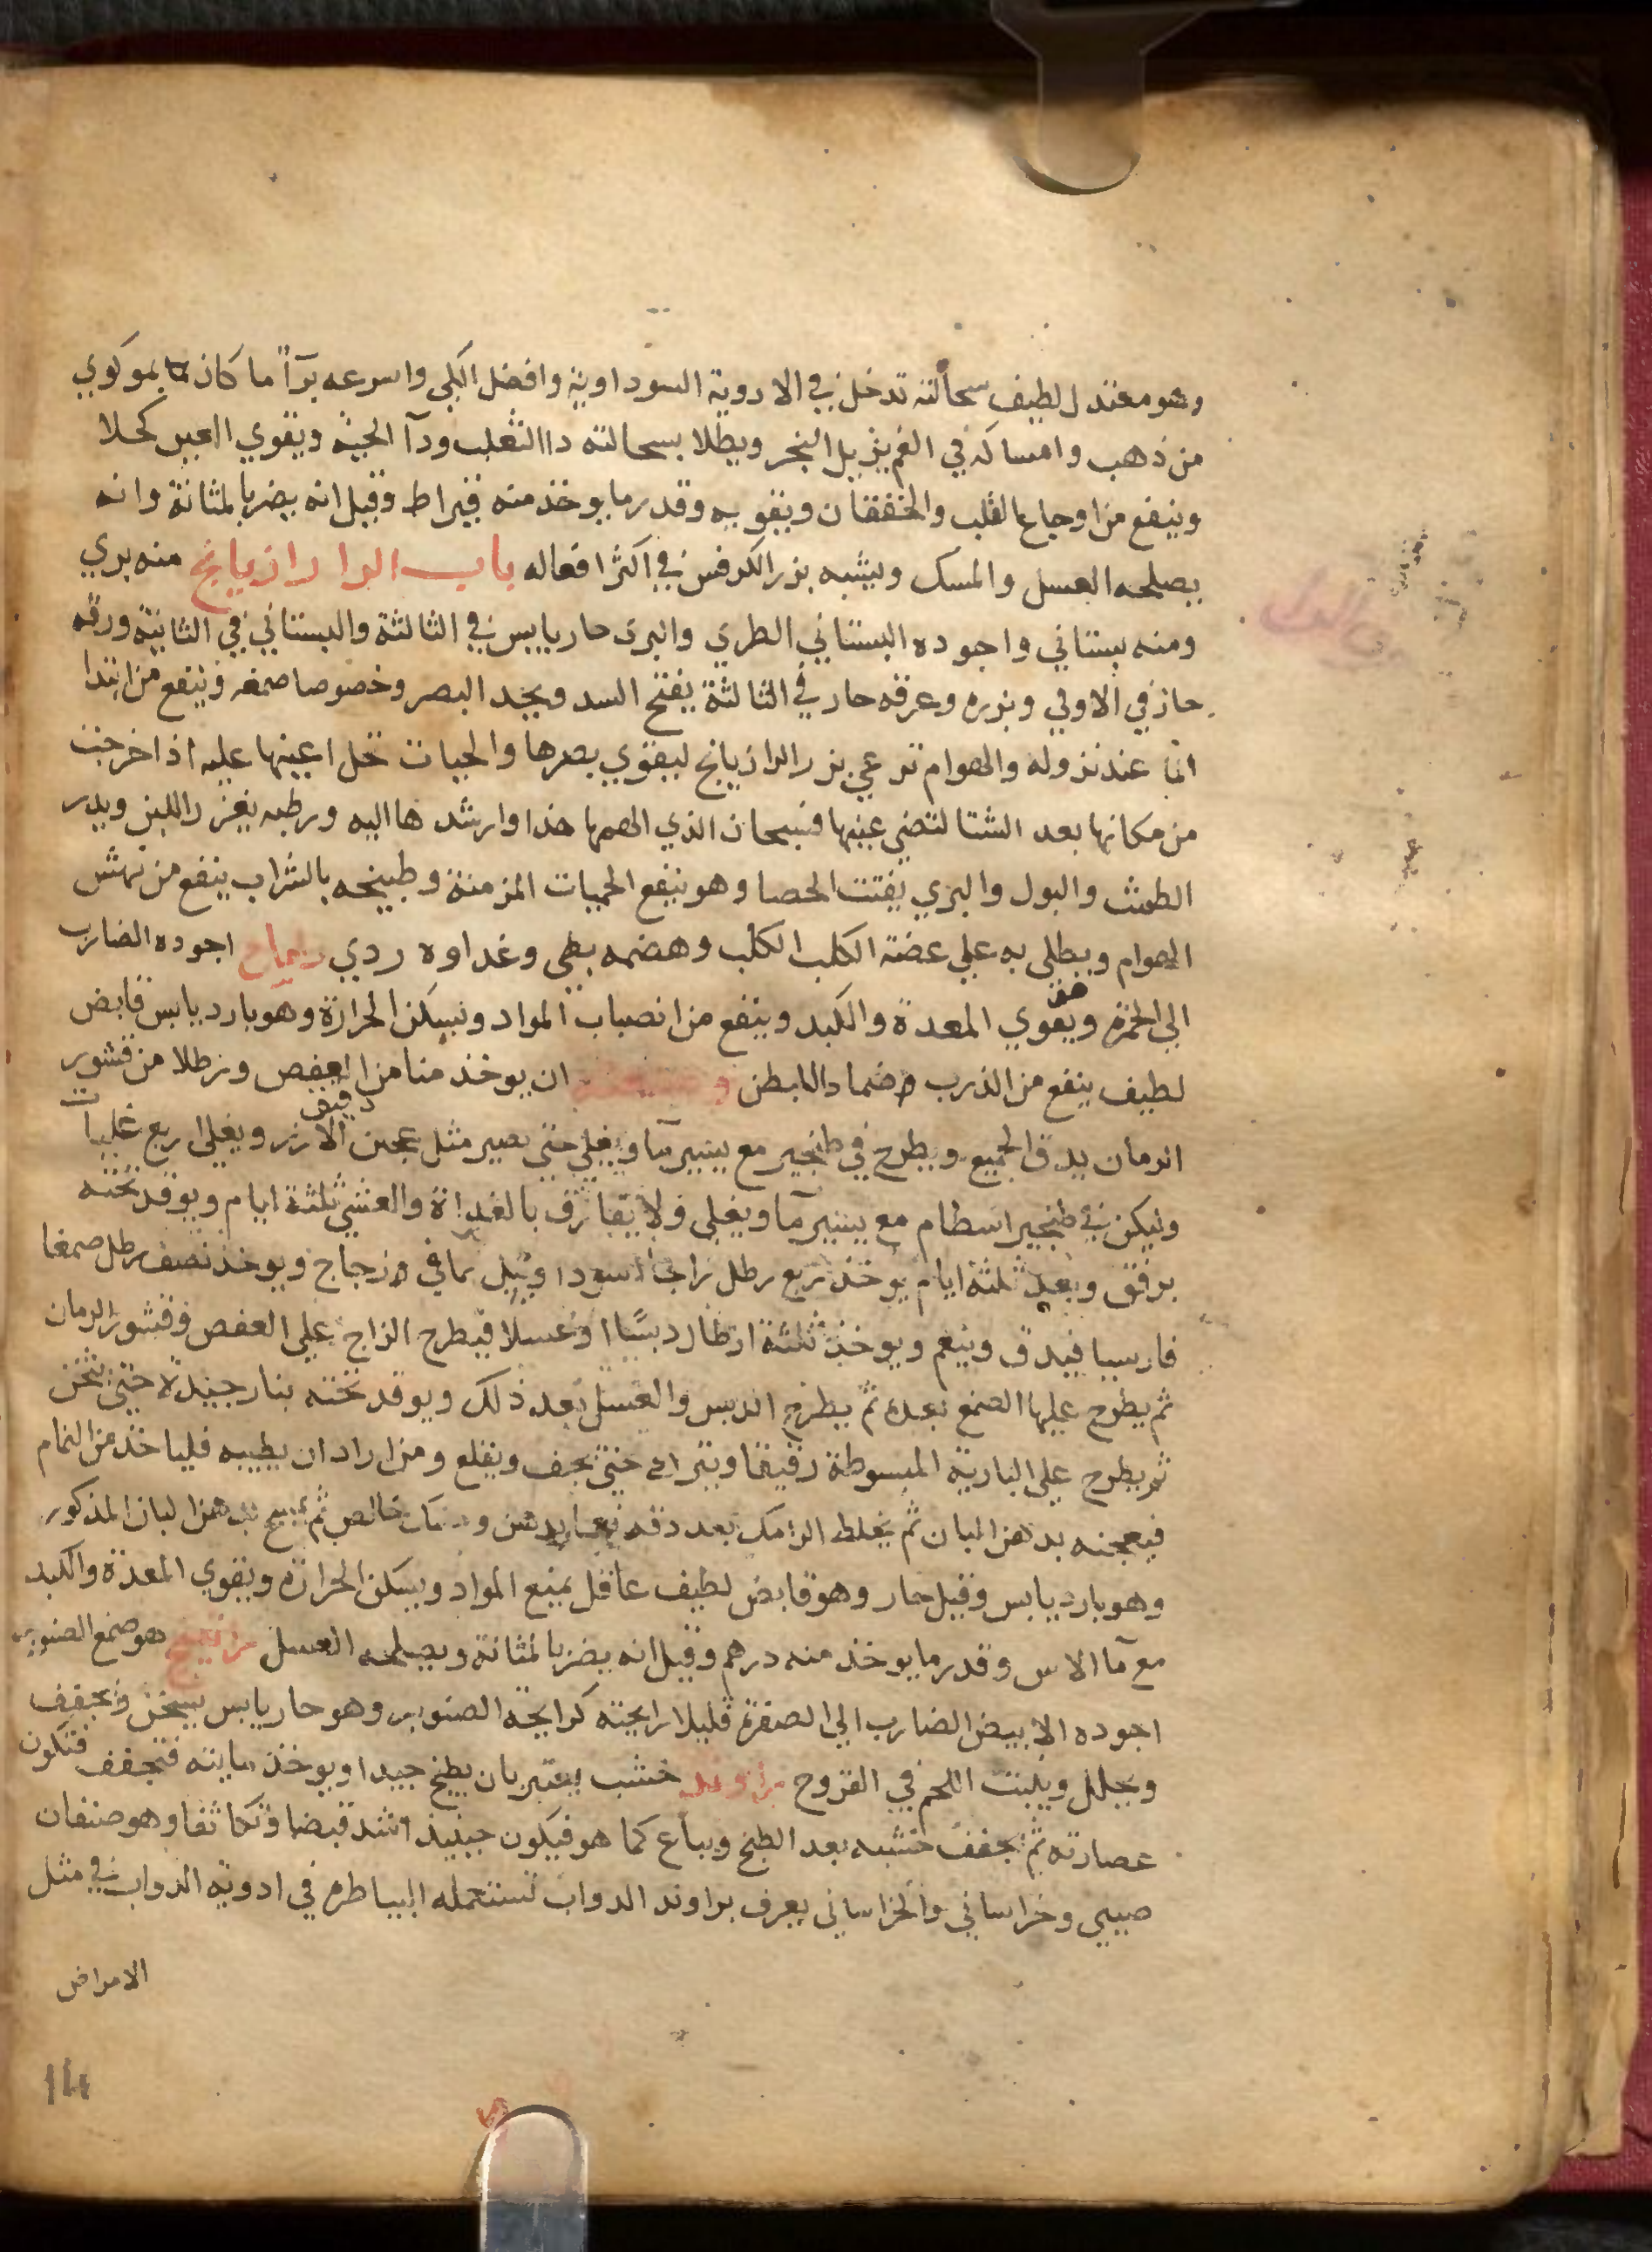 وهو معتدل لطيف سحالته تدخل في الادوية السوداوية وافضل الكلي واسرعه برآ ما كان بموكوي
من ذهب وامساكه في الفم يزيل البخر ويطلا بسحالته داالثعلب ودآ الحية ويقوي العين كحلا
وينفع من اوجاع القلب والخفقان ويقويه وقدر ما يوخذ منه قيراط وقيل انه يضر بالمثانة وانه
يصلحه العسل والمسك ويشبه بزر الكرفس في اكثر افعاله باب الرا رازيانج منه بري
ومنه بستاني واجوده البستاني الطري والبرى حار يابس في الثالثة والبستاني في الثانية ورقه
حار في الاولي وبزره وعرقه حار في الثالثة يفتح السدد ويحد البصر وخصوصا صمغه وينفع من ابتدا
الما عند نزوله والهوام ترعي بزر الرازيانج ليقوي بصرها والحيات تحل اعينها عليه اذا خرجت
من مكانها بعد الشتا لتضي عينها فسبحان الذي الهمها هذا وارشدها اليه ورطبه يغزر اللبن ويدر
الطمث والبول والبري يفتت الحصا وهو ينفع الحميات المزمنة وطبيخه بالشراب ينفع من نهش
الهوام ويطلى به علي عضة الكلب الكلب وهضمه بطي وغداوه ردي اجوده الضارب
الي الحمرة هو ويقوي المعدة والكبد وينفع من انصباب المواد ويسكن الحرارة وهو بارد يابس قابض
لطيف ينفع من الذرب ضمادا لبطن ان يوخذ منا من العفص ورطلا من قشور
الرمان يدق الجميع ويطرح في طنجير مع يسير مآ ويغلي حتى يصير مثل عجين دقيق الارز ويغلي اربع غليات
وليكن في طنجير اسطام مع يسير مآ ويغلي ولا يفارق بالغداة والعشي ثلثة ايام ويوقد تحته
برفق وبعد ثلثة ايام يوخذ ربع رطل زاجا اسودا ويبل بما في زجاج ويوخذ نصف رطل صمغا
فارسيا فيدق وينعم ويوخذ ثلثة ارطال دبسا او عسلا فيطرح الزاج علي العفص وقشور الرمان
ثم يطرح عليها الصمغ بعده ثم يطرح الدبس والعسل بعد ذلك ويوقد تحته بنار جيدة حتى يثخن
ثم يطرح على البارية المبسوطة رقيقا ويترك حتى يجف ويقلع ومن اراد ان يطيبه فلياخذ من النمام
فيعجنه بدهن البان ثم يخلط الرامك بعد دقه خالص ثم لبان المذكور
وهو بارد يابس وقيل حار وهو قابض لطيف عاقل يمنع المواد ويسكن الحرارة ويقوي المعدة والكبد
مع مآ الاس وقدر ما يوخذ منه درهم وقيل انه يضر بالمثانة ويصلحه العسل راتينج هو صمغ الصنوبر
اجوده الابيض الضارب الي الصفرة قليلا رايحته كرايحة الصنوبر وهو حار يابس يسخن ويجفف
ويحلل وينبت اللحم في القروح راوند خشب يعتبر بان يطبخ جيدا ويوخذ مايته فتجفف فتكون
عصارته ثم يجفف خشبه بعد الطبخ ويباع كما هو فيكون حينيذ اشد قبضا وتكاثفا وهو صنفان
صيني وخراساني والخراساني يعرف براوند الدواب تستعمله البياطره في ادوية الدواب في مثل
الامراض
14